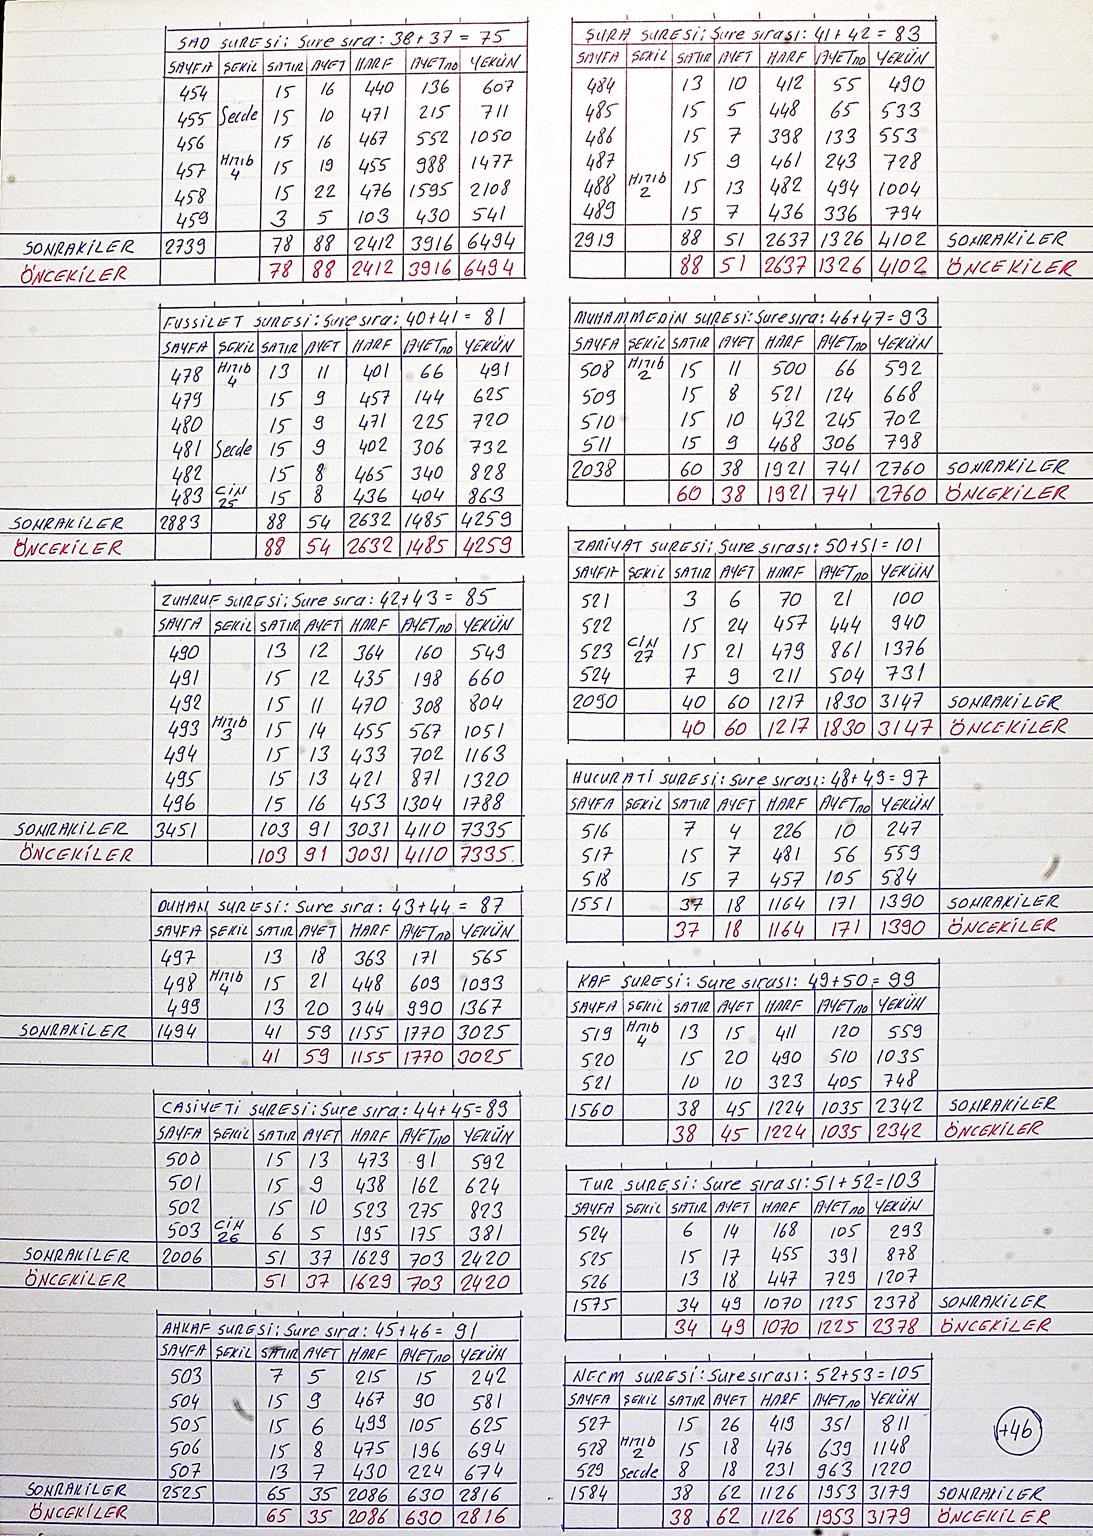 SAD SURESİ: Sure sıra: 38+37 = 75
SAYFA ŞEKİL SATIR AYET HARF AYET no YEKÜN
454 15 16 440 136 607
455 Secde 15 10 471 215 711
456 15 16 467 552 1050
457 Hızıb 4 15 19 455 988 1477
458 15 22 476 1595 2108
459 3 5 103 430 541
SONRAKİLER 2739 78 88 2412 3916 6494
ÖNCEKİLER 78 88 2412 3916 6494
FUSSİLET SURESİ: Sure sıra: 40+41 = 81
SAYFA ŞEKİL SATIR AYET HARF AYET no YEKÜN
478 Hızıb 4 13 11 401 66 491
479 15 9 457 144 625
480 15 9 471 225 720
481 Secde 15 9 402 306 732
482 15 8 465 340 828
483 CİN 25 15 8 436 404 863
SONRAKİLER 2883 88 54 2632 1485 4259
ÖNCEKİLER 88 54 2632 1485 4259
ZUHRUF SURESİ: Sure sıra: 42+43 = 85
SAYFA ŞEKİL SATIR AYET HARF AYET no YEKÜN
490 13 12 364 160 549
491 15 12 435 198 660
492 15 11 470 308 804
493 Hızıb 3 15 14 455 567 1051
494 15 13 433 702 1163
495 15 13 421 871 1320
496 15 16 453 1304 1788
SONRAKİLER 3451 103 91 3031 4110 7335
ÖNCEKİLER 103 91 3031 4110 7335
DUHAN SURESİ: Sure sıra: 43+44 = 87
SAYFA ŞEKİL SATIR AYET HARF AYET no YEKÜN
497 13 18 363 171 565
498 Hızıb 4 15 21 448 609 1093
499 13 20 344 990 1367
SONRAKİLER 1494 41 59 1155 1770 3025
41 59 1155 1770 3025
CASİYETİ SURESİ: Sure sıra: 44+45=89
SAYFA ŞEKİL SATIR AYET HARF AYET no YEKÜN
500 15 13 473 91 592
501 15 9 438 162 624
502 15 10 523 275 823
503 CİN 26 6 5 195 175 381
SONRAKİLER 2006 51 37 1629 703 2420
ÖNCEKİLER 51 37 1629 703 2420
AHKAF SURESİ: Sure sıra: 45+46 = 91
SAYFA ŞEKİL SATIR AYET HARF AYET no YEKÜN
503 7 5 215 15 242
504 15 9 467 90 581
505 15 6 499 105 625
506 15 8 475 196 694
507 13 7 430 224 674
SONRAKİLER 2525 65 35 2086 630 2816
ÖNCEKİLER 65 35 2086 630 2816
ŞURA SURESİ: Sure sırası: 41+42 = 83
SAYFA ŞEKİL SATIR AYET HARF AYET no YEKÜN
484 13 10 412 55 490
485 15 5 448 65 533
486 15 7 398 133 553
487 15 9 461 243 728
488 Hızıb 2 15 13 482 494 1004
489 15 7 436 336 794
2919 88 51 2637 1326 4102 SONRAKİLER
88 51 2637 1326 4102 ÖNCEKİLER
MUHAMMEDİN SURESİ: Sure sıra: 46+47=93
SAYFA ŞEKİL SATIR AYET HARF AYET no YEKÜN
508 Hızıb 2 15 11 500 66 592
509 15 8 521 124 668
510 15 10 432 245 702
511 15 9 468 306 798
2038 60 38 1921 741 2760 SONRAKİLER
60 38 1921 741 2760 ÖNCEKİLER
ZARİYAT SURESİ: Sure sırası: 50+51= 101
SAYFA ŞEKİL SATIR AYET HARF AYET no YEKÜN
521 3 6 70 21 100
522 15 24 457 444 940
523 CİN 27 15 21 479 861 1376
524 7 9 211 504 731
2090 40 60 1217 1830 3147 SONRAKİLER
40 60 1217 1830 3147 ÖNCEKİLER
HUCURATİ SURESİ: Sure sırası: 48+49= 97
SAYFA ŞEKİL SATIR AYET HARF AYET no YEKÜN
516 7 4 226 10 247
517 15 7 481 56 559
518 15 7 457 105 584
1551 37 18 1164 171 1390 SONRAKİLER
37 18 1164 171 1390 ÖNCEKİLER
KAF SURESİ: Sure sırası: 49+50= 99
SAYFA ŞEKİL SATIR AYET HARF AYET no YEKÜN
519 Hızıb 4 13 15 411 120 559
520 15 20 490 510 1035
521 10 10 323 405 748
1560 38 45 1224 1035 2342 SONRAKİLER
38 45 1224 1035 2342 ÖNCEKİLER
TUR SURESİ: Sure sırası: 51+52=103
SAYFA ŞEKİL SATIR AYET HARF AYET no YEKÜN
524 6 14 168 105 293
525 15 17 455 391 878
526 13 18 447 729 1207
1575 34 49 1070 1225 2378 SONRAKİLER
34 49 1070 1225 2378 ÖNCEKİLER
NECM SURESİ: Sure sırası: 52+53=105
SAYFA ŞEKİL SATIR AYET HARF AYET no YEKÜN
527 15 26 419 351 811
528 Hızıb 2 15 18 476 639 1148
529 Secde 8 18 231 963 1220
1584 38 62 1126 1953 3179 SONRAKİLER
38 62 1126 1953 3179 ÖNCEKİLER
+46